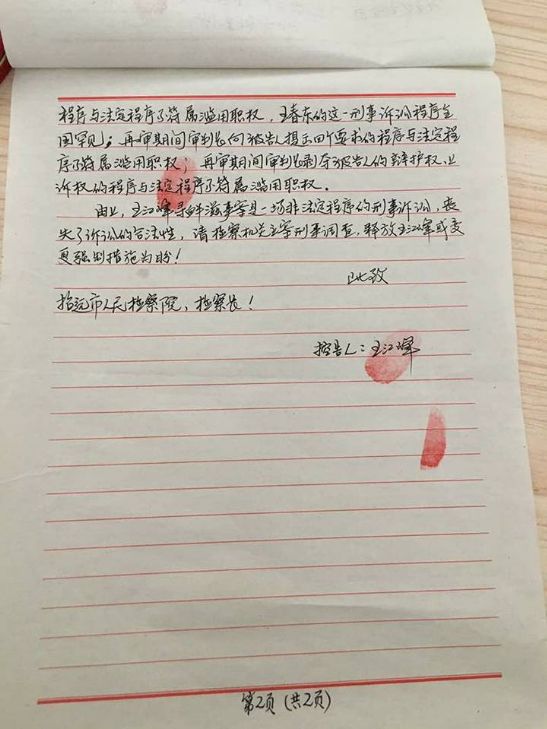 程序与法定程序不符属滥用职权，王春东的这一刑事诉讼程序全
国罕见；再审期间审判长向被告人提示四个要求的程序与法定程
序不符属滥用职权，再审期间审判长剥夺被告人的辩护权、上
诉权的程序与法定程序不符属滥用职权。
由此，王江峰寻衅滋事案是一场非法定程序的刑事诉讼，丧
失了诉讼的合法性，请检察机关立案刑事调查，释放王江峰或变
更强制措施为盼！
此致
招远市人民检察院，检察长！
控告人：王江峰
第2页(共2页)